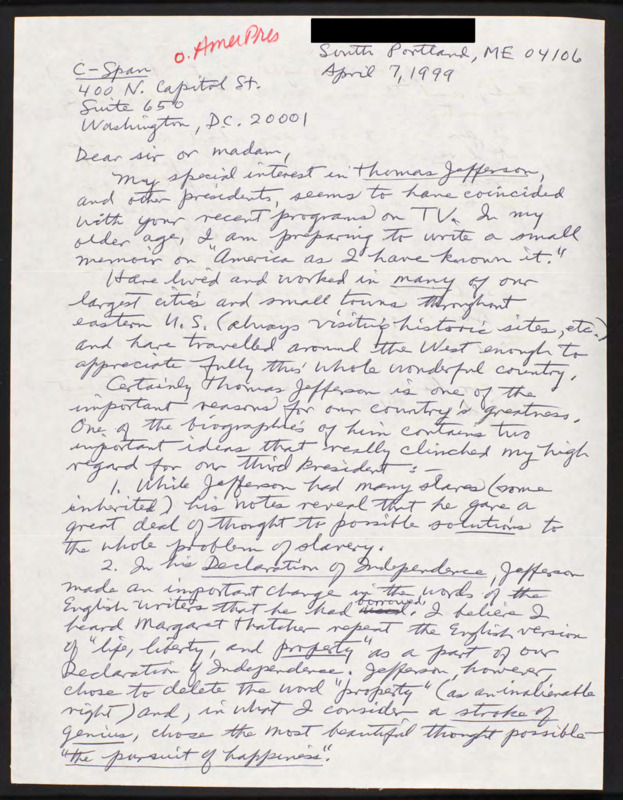 o. AmerPres
South Portland, ME 04106
April 7, 1999
C-Span
400 N. Capitol St.
Suite 650
Washington, D.C. 20001
Dear sir or madam,
My special interest in Thomas Jefferson,
and other presidents, seems to have coincided
with your recent programs on TV. In my
older age, I am preparing to write a small
memoir on "America as I have known it."
Have lived and worked in many of our
largest cities and small towns throughout
eastern U.S. (always visiting historic sites, etc.)
and have travelled around the West enough to
appreciate fully this whole wonderful country.
Certainly Thomas Jefferson is one of the
important reasons for our country's greatness.
One of the biographies of him contains two
important ideas that really clinched my high
regard for our third president:-
1. While Jefferson had many slaves (some
inherited) his notes reveal that he gave a
great deal of thought to possible solutions to
the whole problem of slavery.
2. In his Declaration of Independence, Jefferson
made an important change in the words of the
English writers that he had borrowed. I believe I
heard Margaret Thatcher repeat the English version
of "life, liberty, and property" as a part of our
Declaration of Independence. Jefferson, however,
chose to delete the word "property" (as an inalienable
right) and, in what I consider a stroke of
genius, chose the most beautiful thought possible—
"the pursuit of happiness".